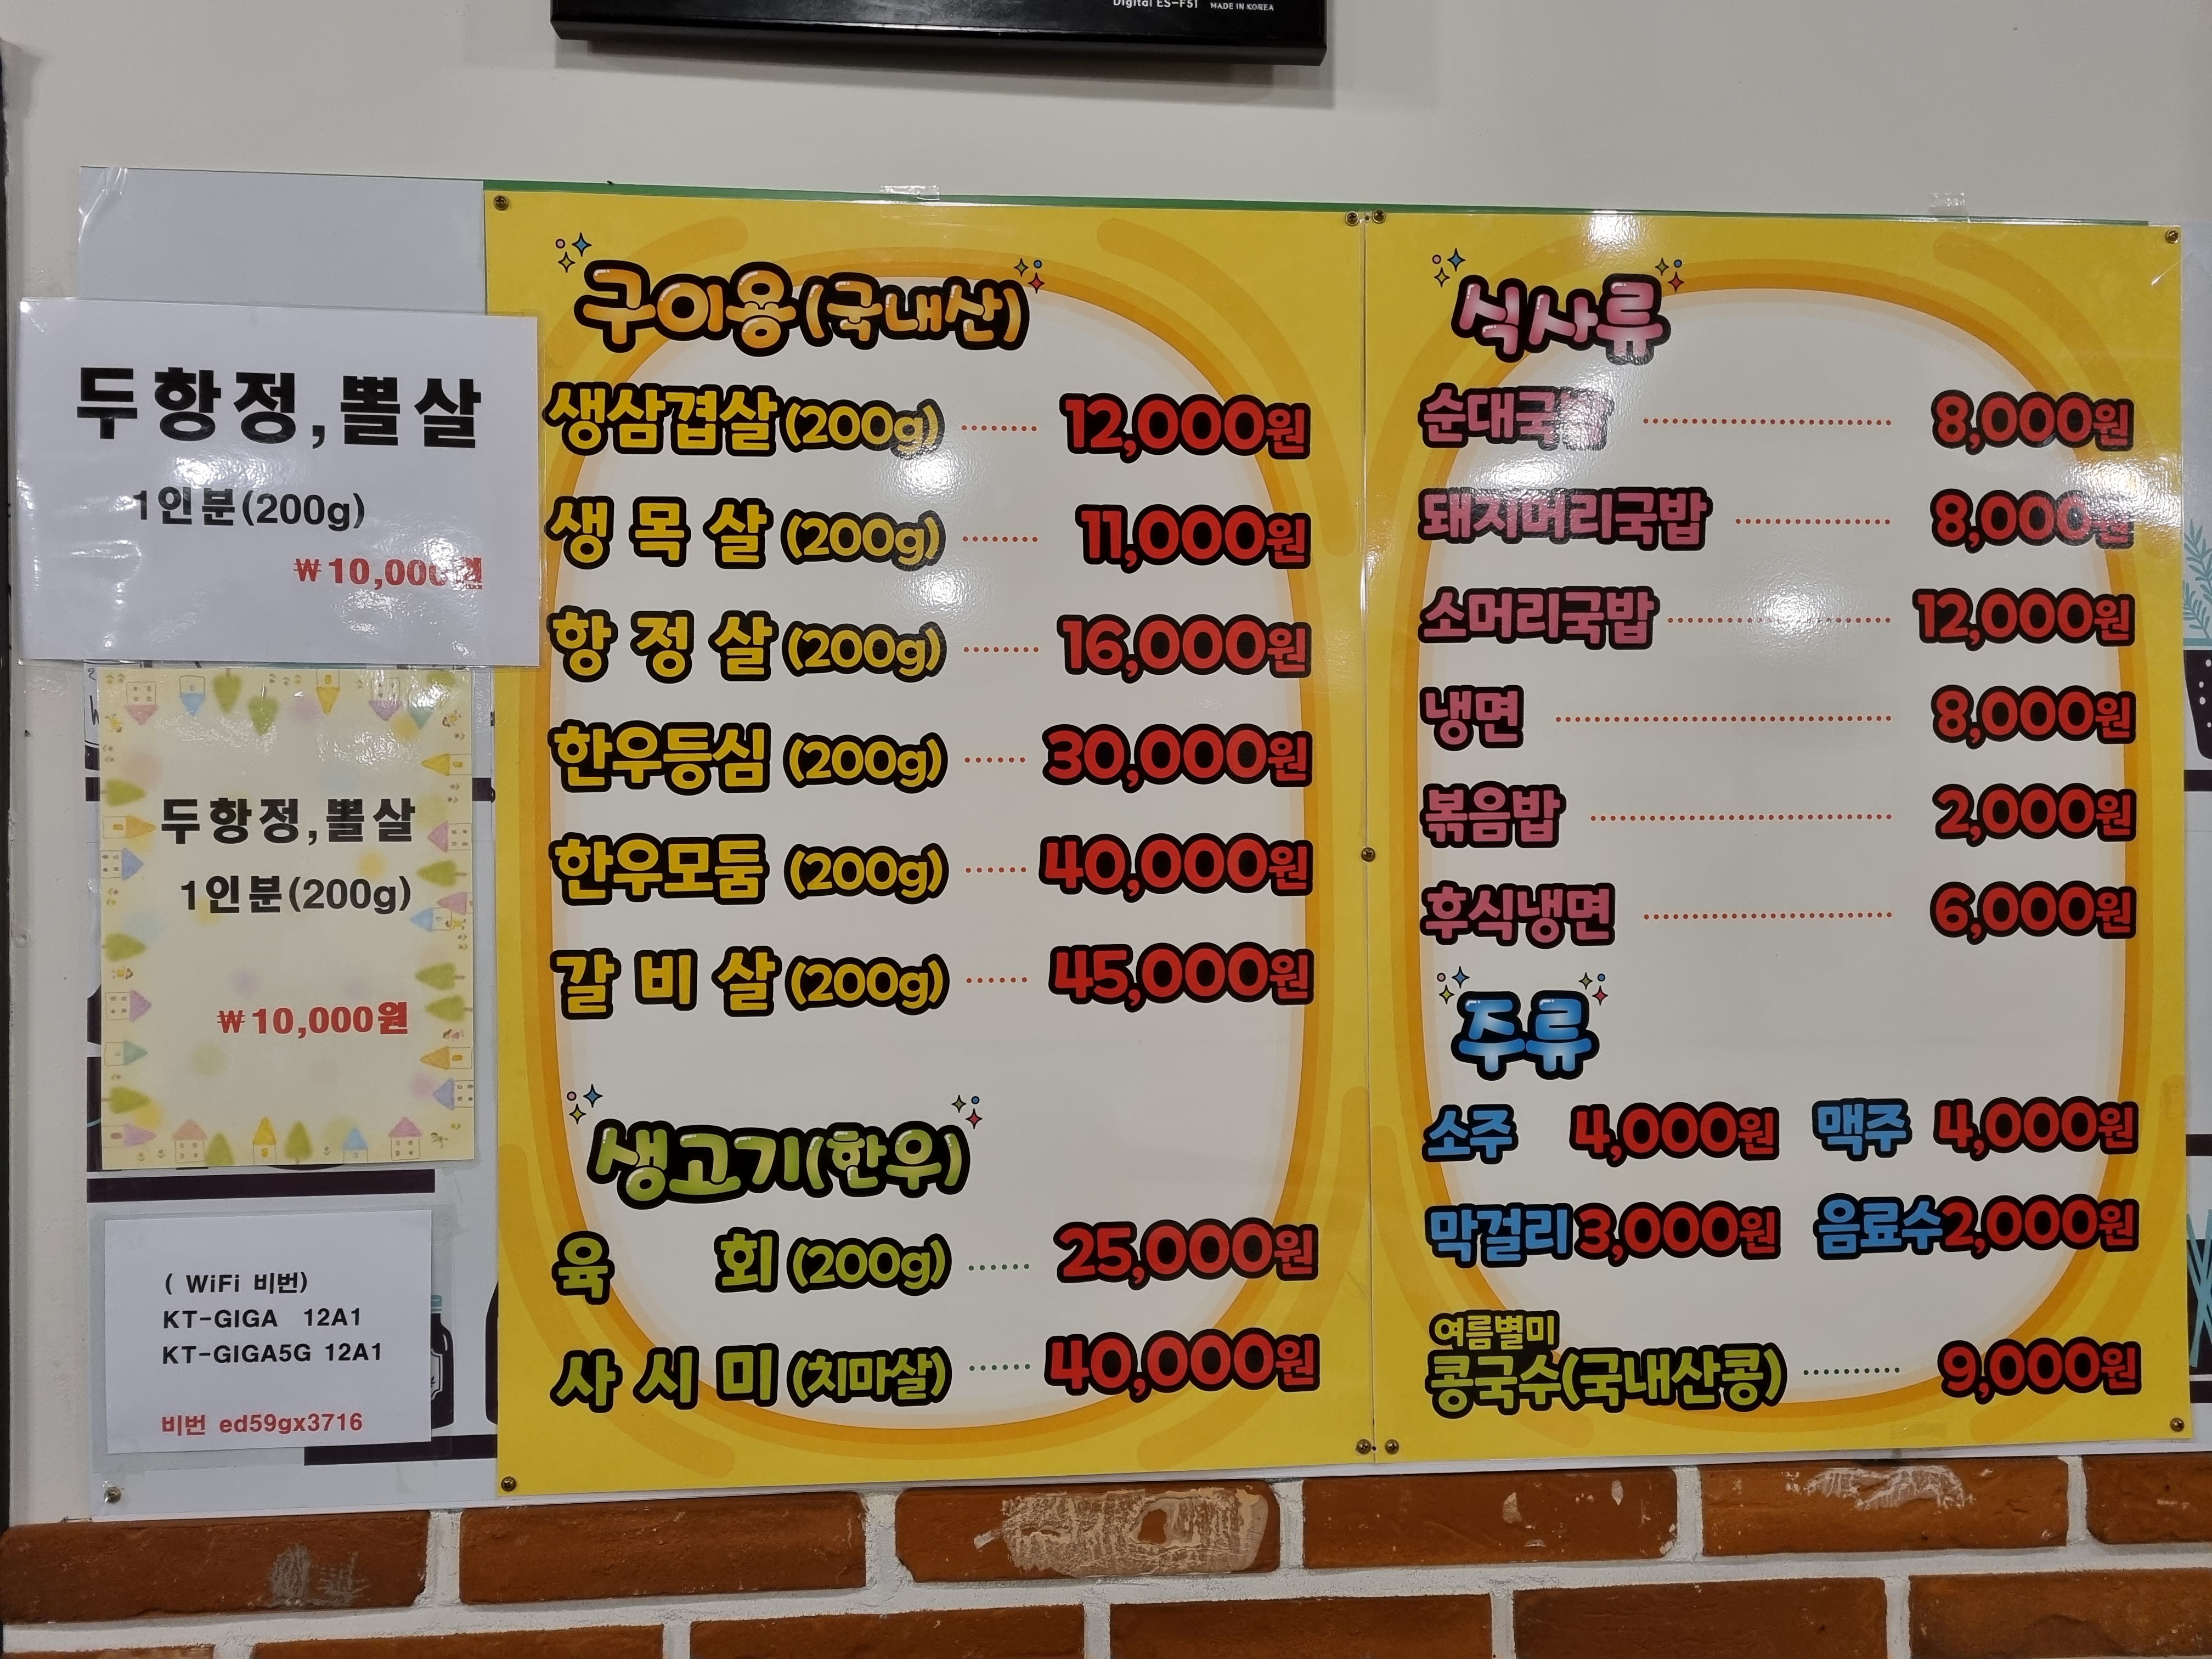 Digital ES-F51 MADE IN KOREA
두항정,뽈살
1인분(200g)
₩10,000원
두항정,뽈살
1인분(200g)
₩10,000원
( WiFi 비번)
KT-GIGA 12A1
KT-GIGA5G 12A1
비번 ed59gx3716
구이용(국내산)
생삼겹살(200g) 12,000원
생목살(200g) 11,000원
항정살(200g) 16,000원
한우등심(200g) 30,000원
한우모둠(200g) 40,000원
갈비살(200g) 45,000원
생고기(한우)
육회(200g) 25,000원
사시미(치마살) 40,000원
식사류
순대국밥 8,000원
돼지머리국밥 8,000원
소머리국밥 12,000원
냉면 8,000원
볶음밥 2,000원
후식냉면 6,000원
주류
소주 4,000원 맥주 4,000원
막걸리 3,000원 음료수 2,000원
여름별미
콩국수(국내산콩) 9,000원